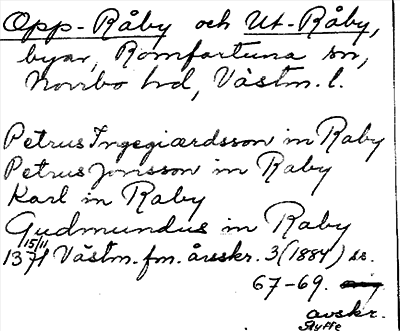 Opp-Råby och Ut-Råby,
byar, Romfartuna sn,
Norrbo hd, Västm. l.
Petrus Ingegiærdsson in Raby
Petrus Jonsson in Raby
Karl in Raby
Gudmundus in Raby
15/11
1371 Västm. fm. årsskr. 3 (1884) ss.
67-69.
avskr.
Styffe